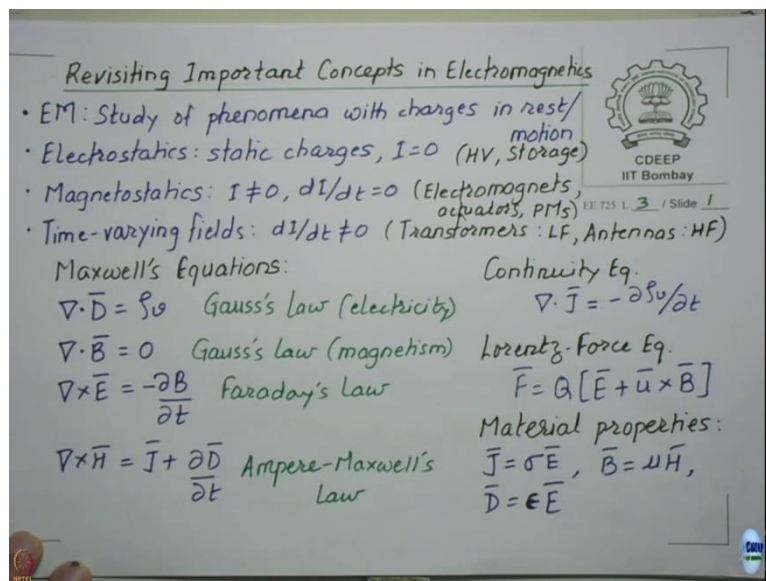 Revisiting Important Concepts in Electromagnetics
• EM: Study of phenomena with charges in rest/
motion
• Electrostatics: static charges, I=0 (HV, Storage)
CDEEP
IIT Bombay
• Magnetostatics: I≠0, dI/dt=0 (Electromagnets,
actuators, PMs)
EE 725 L 3 / Slide 1
• Time-varying fields: dI/dt≠0 (Transformers: LF, Antennas: HF)
Maxwell's Equations:
∇·D̄ = ρv Gauss's Law (electricity)
∇·B̄ = 0 Gauss's Law (magnetism)
∇×Ē = -∂B/∂t Faraday's Law
∇×H̄ = J̄ + ∂D̄/∂t Ampere-Maxwell's
Law
Continuity Eq.
∇·J̄ = -∂ρv/∂t
Lorentz-Force Eq.
F̄ = Q[Ē + ū×B̄]
Material properties:
J̄ = σĒ, B̄ = μH̄,
D̄ = ϵĒ
NPTEL
CDEEP